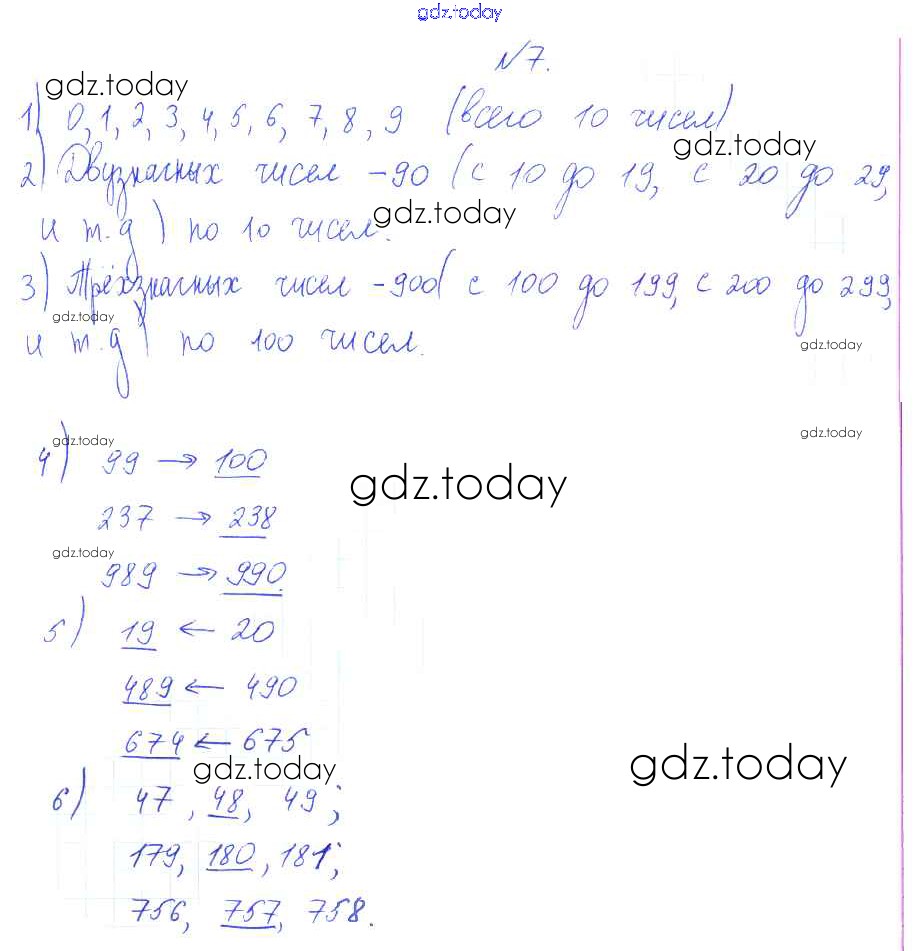 gdz.today
№7.
gdz.today
1) 0, 1, 2, 3, 4, 5, 6, 7, 8, 9 (всего 10 чисел)
gdz.today
2) Двузначных чисел -90 (с 10 до 19, с 20 до 29,
gdz.today
и т.д) по 10 чисел.
3) Трёхзначных чисел -900( с 100 до 199, с 200 до 299,
gdz.today
и т.д) по 100 чисел.
gdz.today
gdz.today
gdz.today
4) 99 → 100
gdz.today
237 → 238
gdz.today
989 → 990.
5) 19 ← 20
489 ← 490
674 ← 675
gdz.today
gdz.today
6) 47, 48, 49;
179, 180, 181;
756, 757, 758.